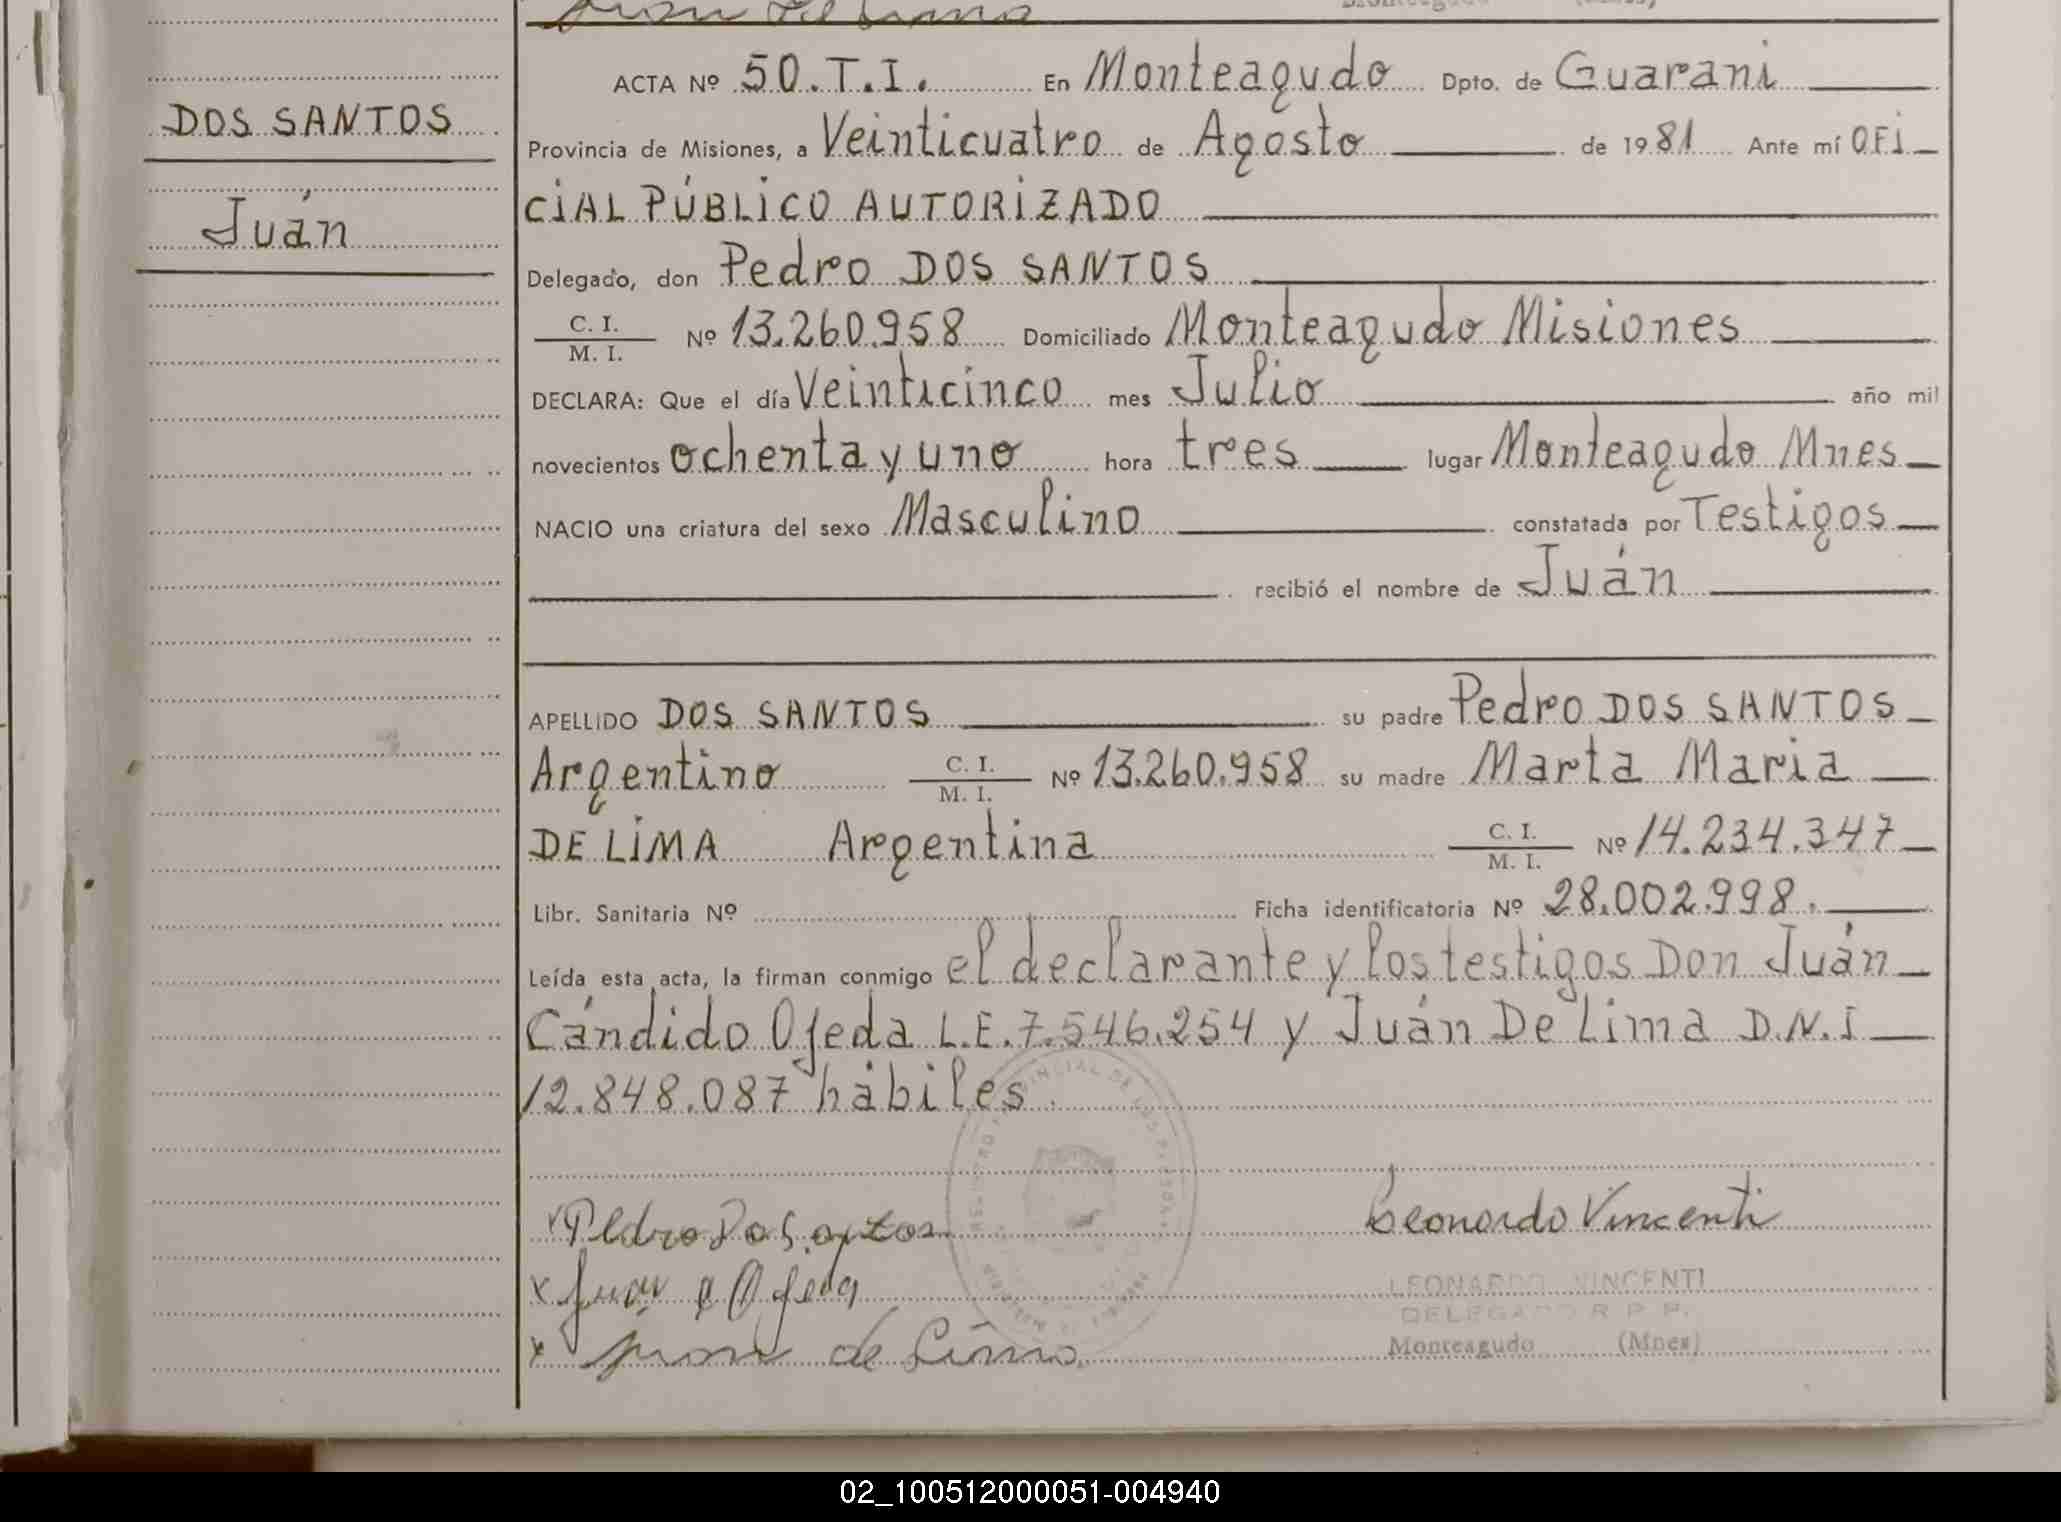 DOS SANTOS
Juán
ACTA Nº 50.T.I. En Monteagudo Dpto. de Guarani
Provincia de Misiones, a Veinticuatro de Agosto de 1981 Ante mí OFi
CiAL PÚBLiCO AUTORIZADO
Delegado, don Pedro DOS SANTOS
C. I.
M. I. Nº 13.260.958 Domiciliado Monteagudo Misiones
DECLARA: Que el día Veinticinco mes Julio año mil
novecientos ochenta y uno hora tres lugar Monteagudo Mnes
NACIO una criatura del sexo Masculino constatada por Testigos
recibió el nombre de Juán
APELLIDO DOS SANTOS su padre Pedro DOS SANTOS
Argentino C. I. M. I. Nº 13.260.958 su madre Marta Maria
DE LiMA Argentina C. I. M. I. Nº 14.234.347
Libr. Sanitaria Nº Ficha identificatoria Nº 28.002.998.
Leída esta acta, la firman conmigo el declarante y los testigos Don Juán
Cándido Ojeda L.E. 7.546.254 y Juán De Lima D.N.I
12.848.087 hábiles.
x Pedro Dos antos Leonardo Vincenti
x Juan C Ojeda LEONARDO VINCENTI
DELEGADO R P P.
x Juan de Lima Monteagudo (Mnes)
02_100512000051-004940